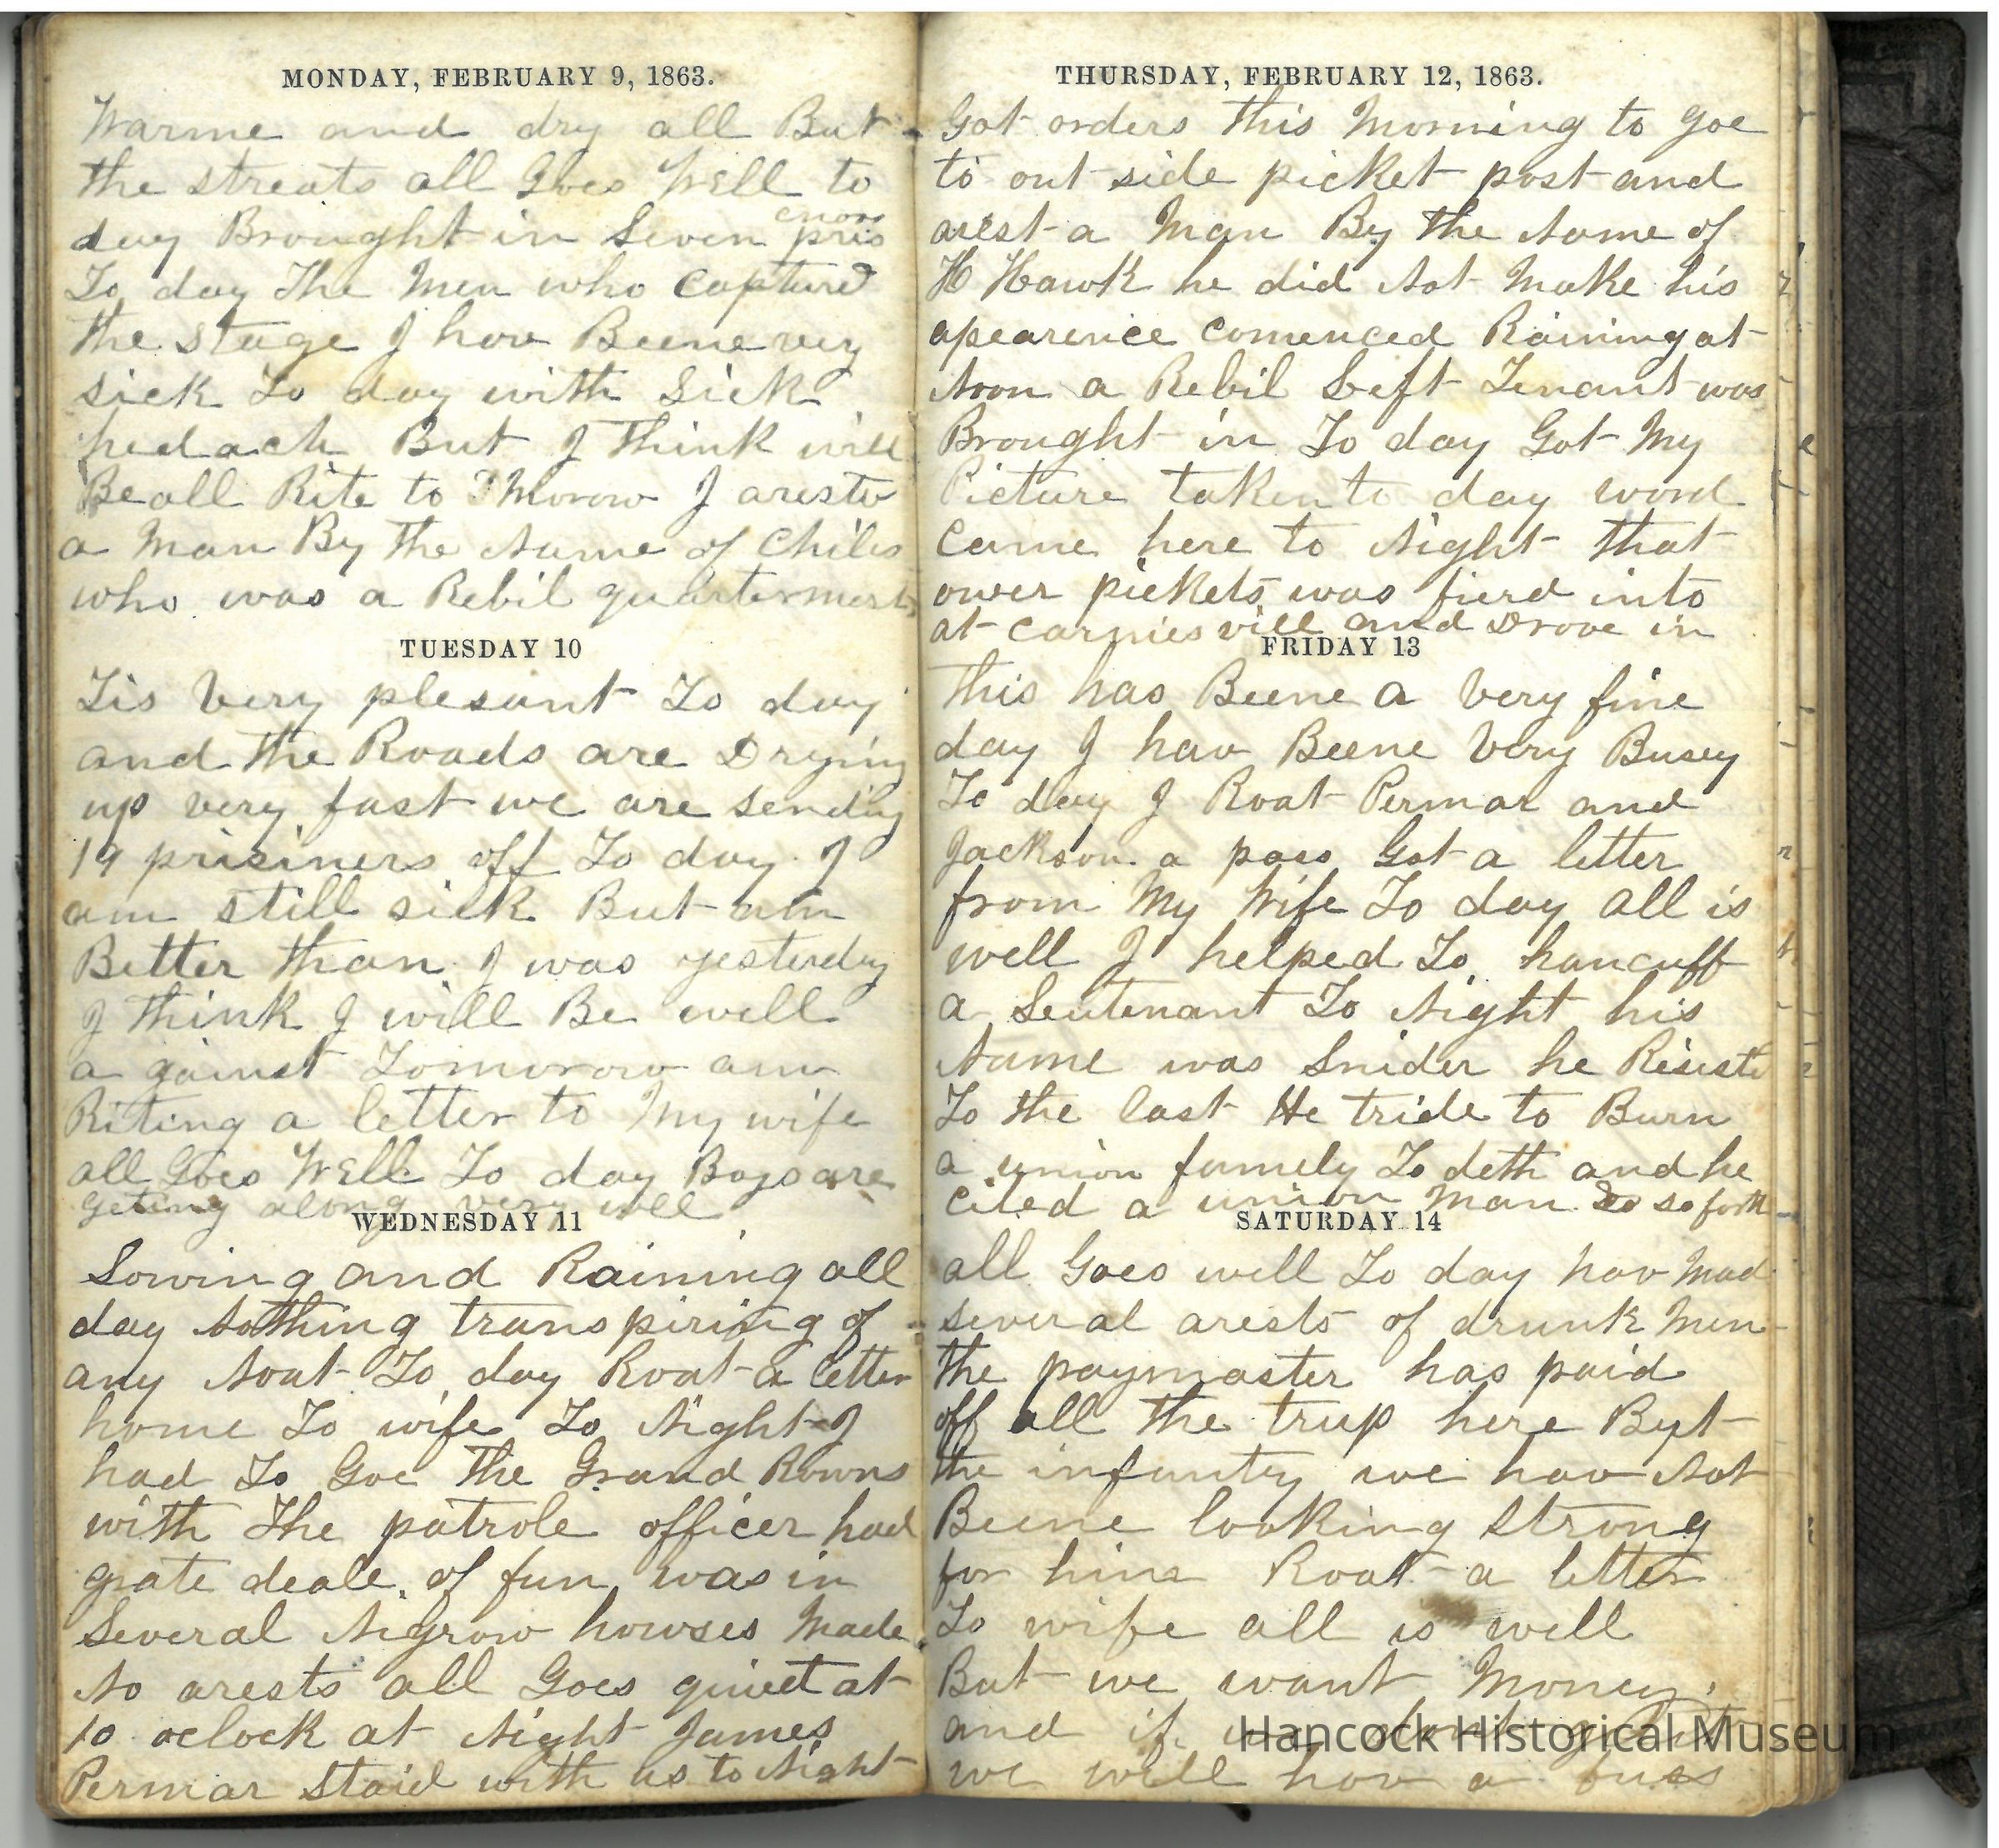 MONDAY, FEBRUARY 9, 1863.
Warme and dry all But
the streats all Goes Well to
day Brought in Seven prisenors
To day The Men who capturd
the stage I hav Beene very
sick To day with Sick
hedach But I think will
Be all Rite to Morow I arestd
a Man By the Name of Chiles
who was a Rebil quartermast
TUESDAY 10
Tis Very plesant To day
and the Roads are Drying
up very fast we are sending
19 prisiners off To day I
am still sick But am
Better than I was yesterday
I think I will Be well
a gainst Tomorow am
Riting a letter to My wife
all Goes Well To day Boys are
geting along very well
WEDNESDAY 11
Sowing and Raining all
day Nothing transpiring of
any Noat To day Roat a letter
home To wife To Night I
had To Goe The Grand Rowns
with The patrole officer had
grate deale of fun was in
Several Nigrow howses Made
No arests all Goes quiet at
10 oclock at Night James
Permar Staid with us to Night
THURSDAY, FEBRUARY 12, 1863.
Got orders this Morning to goe
to out side picket post and
arest a Man By the Name of
H Hawk he did Not Make his
apearence comenced Raining at
Noon a Rebil Left Tenant was
Brought in To day Got My
Picture taken to day word
Came here to Night that
ower pickets was fierd into
at Carniesvill and Drove in
FRIDAY 13
This has Beene a Very fine
day I hav Beene Very Busey
To day I Roat Permar and
Jackson a pass Got a letter
from My Wife To day all is
well I helped To hancuff
a Leutenant To Night his
Name was Snider he Resistd
To the last He tride to Burn
a union famely To deth and he
Ciled a union Man So so forth
SATURDAY 14
all Goes well To day hav Mad
several arests of drunk Men
the paymaster has paid
off all the trup here But
the infantry we hav Not
Beene looking strong
for him Roat a letter
To wife all is well
But we want Money
and if we dont get it
we will hav a fuss
Hancock Historical Museum